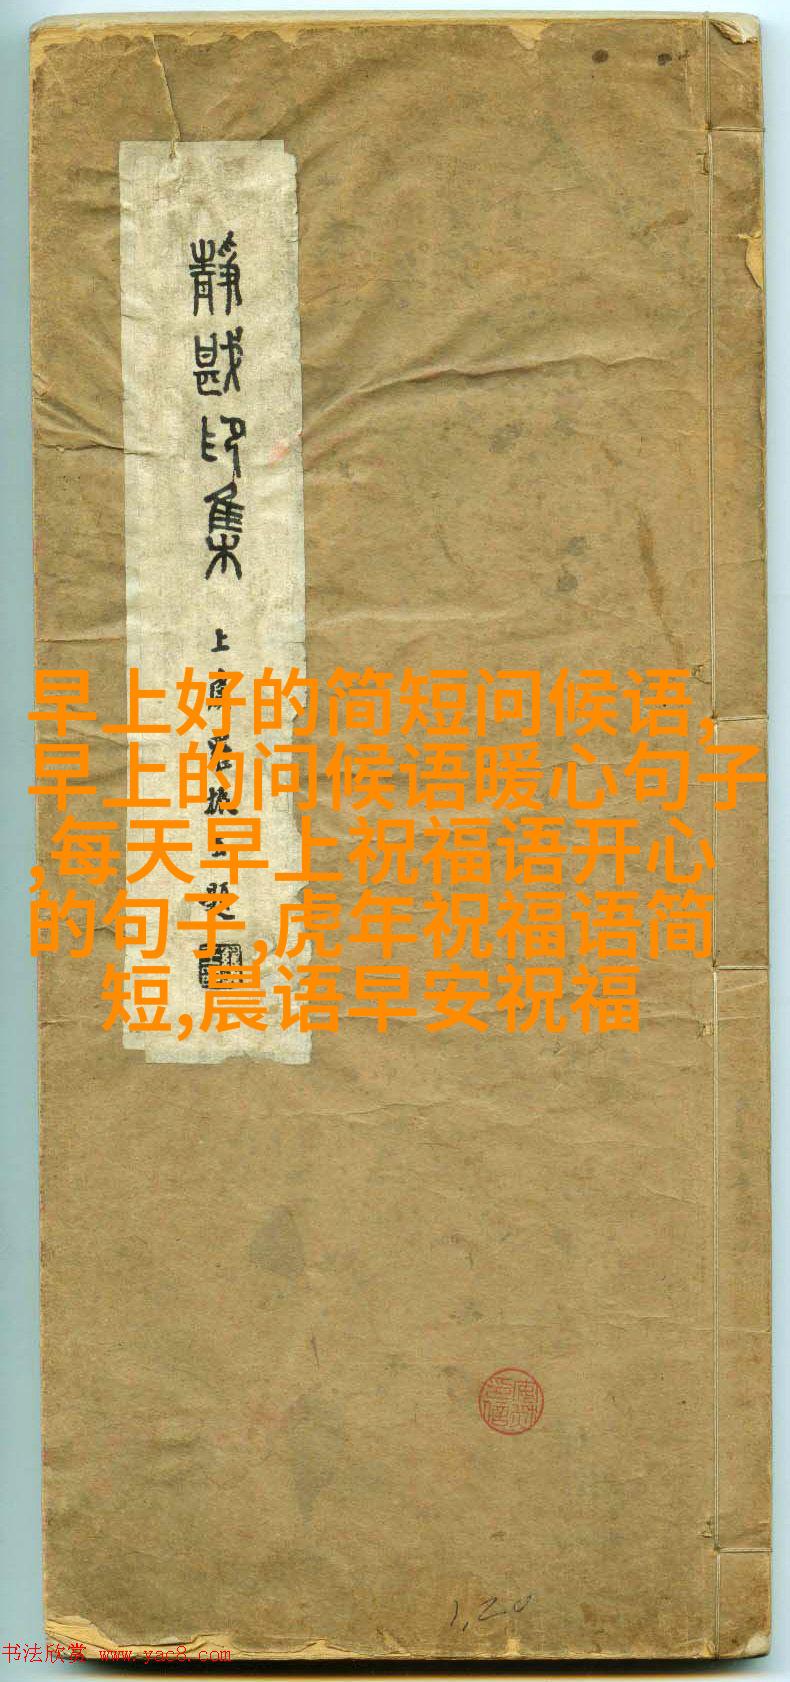 静戡印集
早上好的简短问候语,
早上的问候语暖心句子
,每天早上祝福语开心
的句子,虎年祝福语简
短,晨语早安祝福
1,20
书法欣赏 www.yac8.com